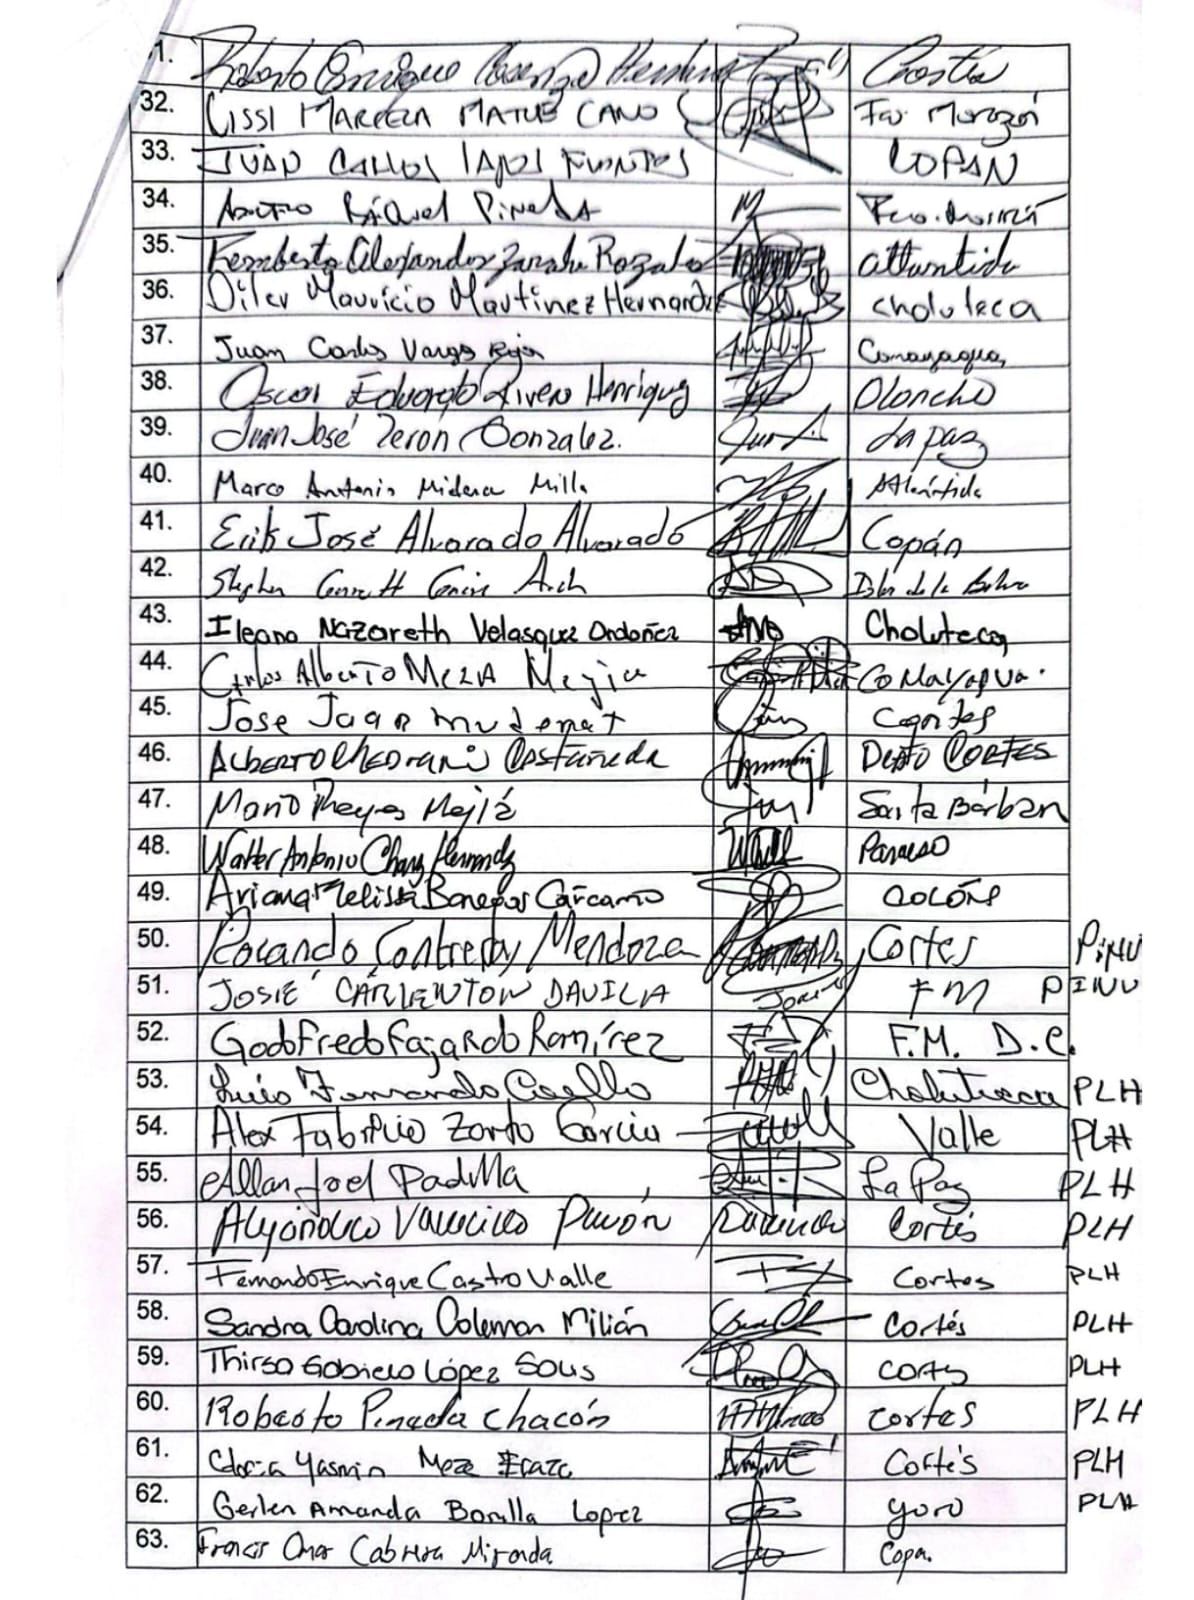 1. Roberto Enrique Cosenza Hernández
32. LISSI MARCELA MATUE CANO Fco Morazán
33. JUAN CARLOS LAJOS FUNTES COPAN
34. Ráquel Pineda Fco. Morazán
35. Remberto Alejandor Zavala Rozales attlantida
36. Diler Mauricio Martinez Hernandez choluteca
37. Juan Carlos Vargs Rojas Comayagua,
38. Oscar Eduardo Rivera Henriquez Olancho
39. Juan José Zerón Gonzalez. La paz
40. Marco Antonio Midence Milla Atlántida
41. Erik José Alvarado Alvarado Copán
42. Stephen Islas de la Bahia
43. Ileana Nazareth Velasquez Ordoñez Choluteca,
44. Carlos Alberto MEZA Mejia COMayagua.
45. Jose Jaar Mudenat Cortes
46. ALBERTO CHEDRANI Castañeda Depto CORTES
47. Mario Reyes Mejía Santa Bárbara
48. Walter Antonio Chavez Hernandez Paraiso
49. Ariana Melissa Banegas Cárcamo COLÓN
50. Rolando Contreras Mendoza Cortes PiNU
51. JOSIE CARLENTON DAVILA FM PINU
52. Godofredo Fajardo Ramírez F.M. D.C.
53. Luis Fernando Coello Choluteca PLH
54. Alex Fabricio Zorto Garcia Valle PLH
55. Allan Joel Padilla La Paz PLH
56. Pavón Cortés PLH
57. Fernando Enrique Castro Valle Cortes PLH
58. Sandra Carolina Coleman Milián Cortés PLH
59. Thirsa Gabriela López Solis Cortes PLH
60. Roberto Pineda Chacón Cortes PLH
61. Gloria Yasmin Meza Erazo Cortés PLH
62. Gerlen Amanda Bonilla Lopez yoro PLH
63. Francis Omar Cabrera Miranda Copa.